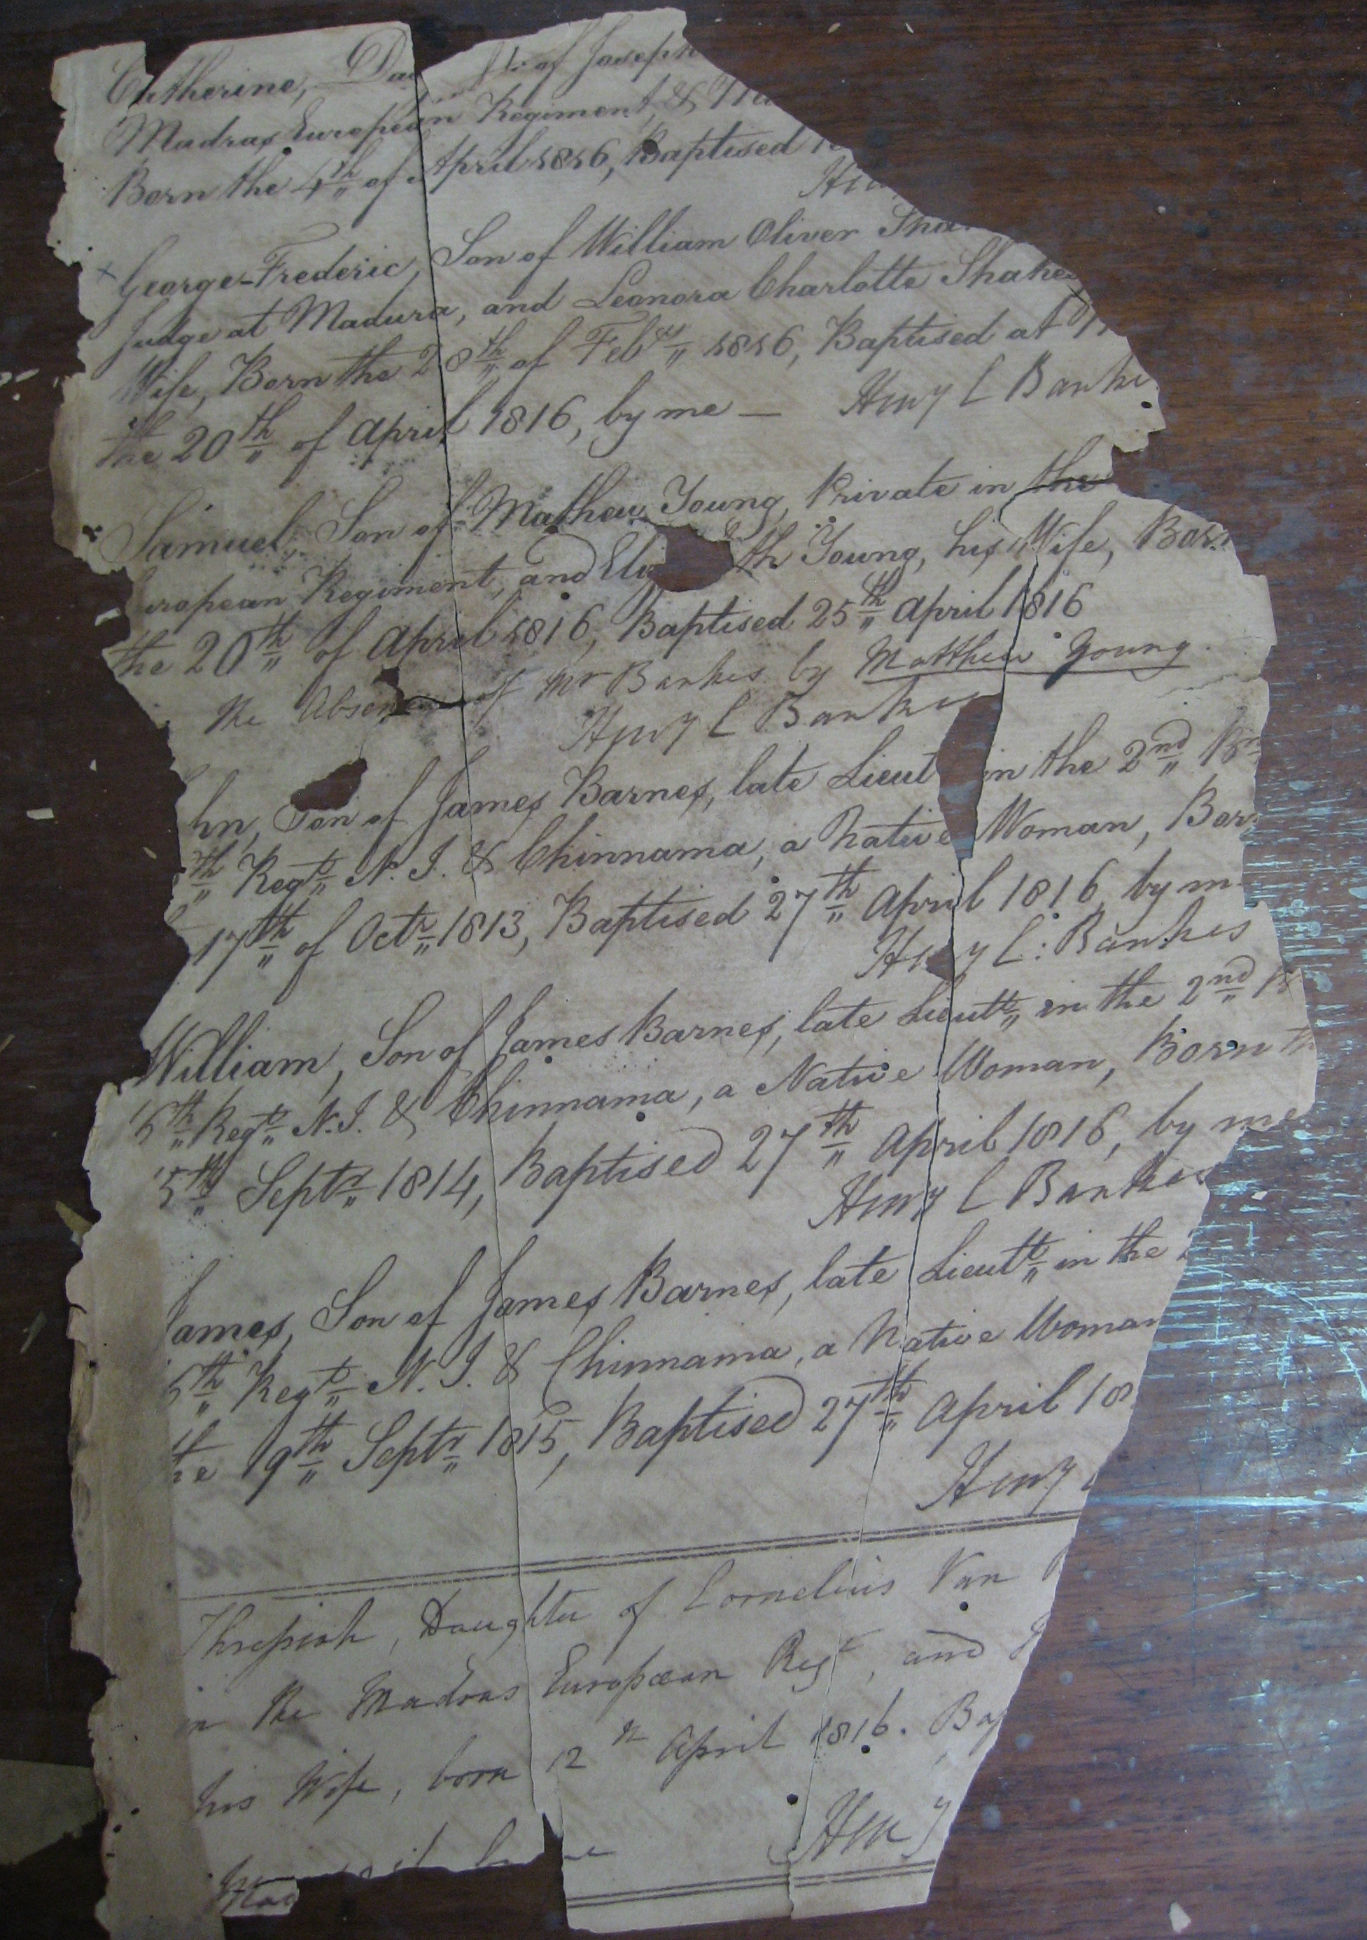 Catherine, Da of Joseph
Madras European Regiment, &
Born the 4th of April 1816, Baptised
Hen
George-Frederic, Son of William Oliver Sha
Judge at Madura, and Leonora Charlotte Shakes
Wife, Born the 28th of Feby 1816, Baptised at
the 20th of April 1816, by me — Henry L Banke
Samuel, Son of Mathew Young, Private in the
uropean Regiment, and Eliz th Young, his Wife, Born
the 20th of April 1816, Baptised 25th April 1816
the Absence of Mr Bankes by Matthew Young.
Henry L Bankes
hn, Son of James Barnes, late Lieut in the 2nd Bn
th Regt N. I. & Chinnama, a Native Woman, Bor
17th of Octr 1813, Baptised 27th April 1816, by m
He y L: Bankes
William, Son of James Barnes, late Lieutt in the 2nd B
5th Regt N. I. & Chinnama, a Native Woman, Born th
5th Septr 1814, Baptised 27th April 1816, by me
Henry L Bankes
James, Son of James Barnes, late Lieutt in the 2
5th Regt N. I. & Chinnama, a Native Woman
he 9th Septr 1815, Baptised 27th April 18
Henry L
Daughter of Cornelius Van
in the Madras European Regt, and
his Wife, born 12th April 1816. Bap
Henry